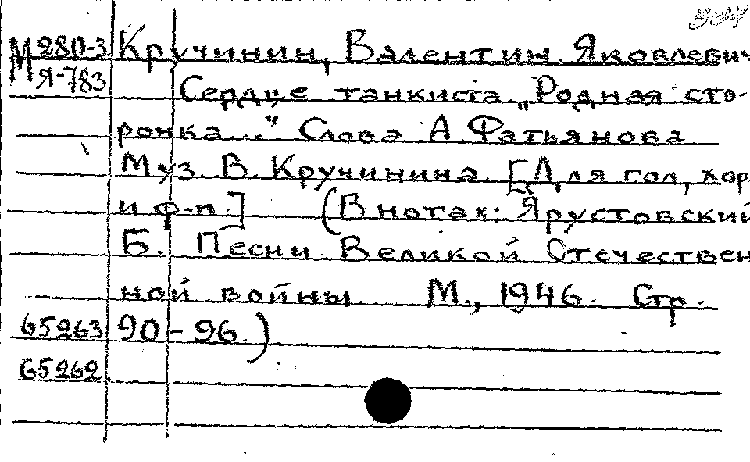 М 280-3 Кручинин, Валентин Яковлевич
Я-783 Сердце танкиста „Родная сто-
ронка..." Слова А Фатьянова
Муз В. Кручинина [Для гол, хор
и ф-п.] (В нотах: Ярустовский
Б. Песни Великой Отечествен
ной войны М., 1946. Стр.
65263 90-96.)
65262